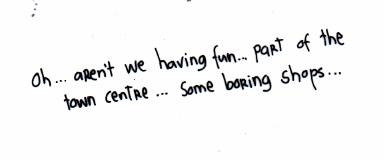 Oh... aren't we having fun... part of the
town centre... Some boring shops...